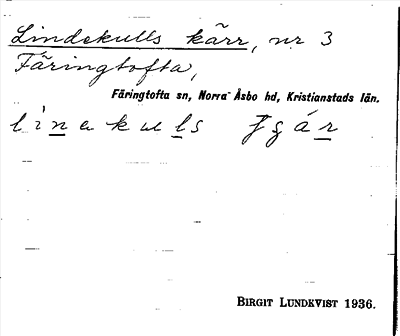 Lindekulls kärr, nr 3
Färingtofta,
Färingtofta sn, Norra Åsbo hd, Kristianstads län.
linakuls
BIRGIT LUNDKVIST 1936.